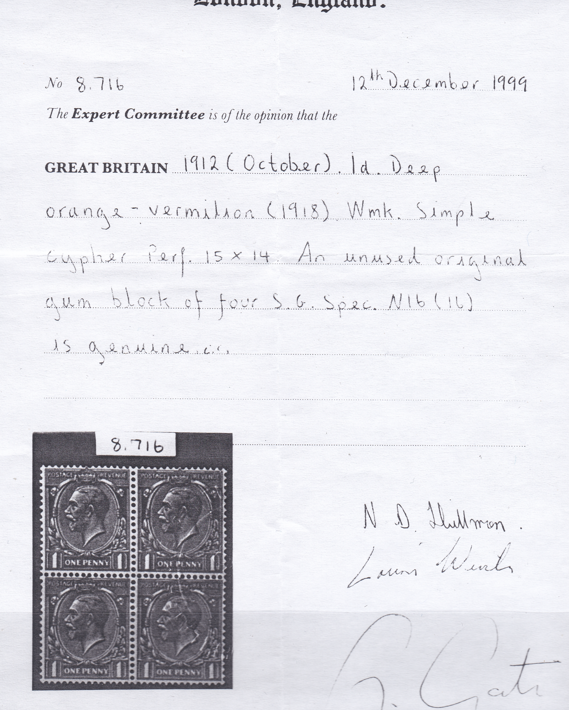 London, England.
No 8.716 12th December 1999
The Expert Committee is of the opinion that the
GREAT BRITAIN 1912 (October). 1d. Deep
orange-vermilion (1918) Wmk. Simple
cypher Perf. 15 x 14 An unused original
gum block of four S.G. Spec. N16 (16)
is genuine
8.716
POSTAGE REVENUE POSTAGE REVENUE
1 ONE PENNY 1 1 ONE PENNY 1
1 ONE PENNY 1 1 ONE PENNY 1
N. D.
Louis
G.